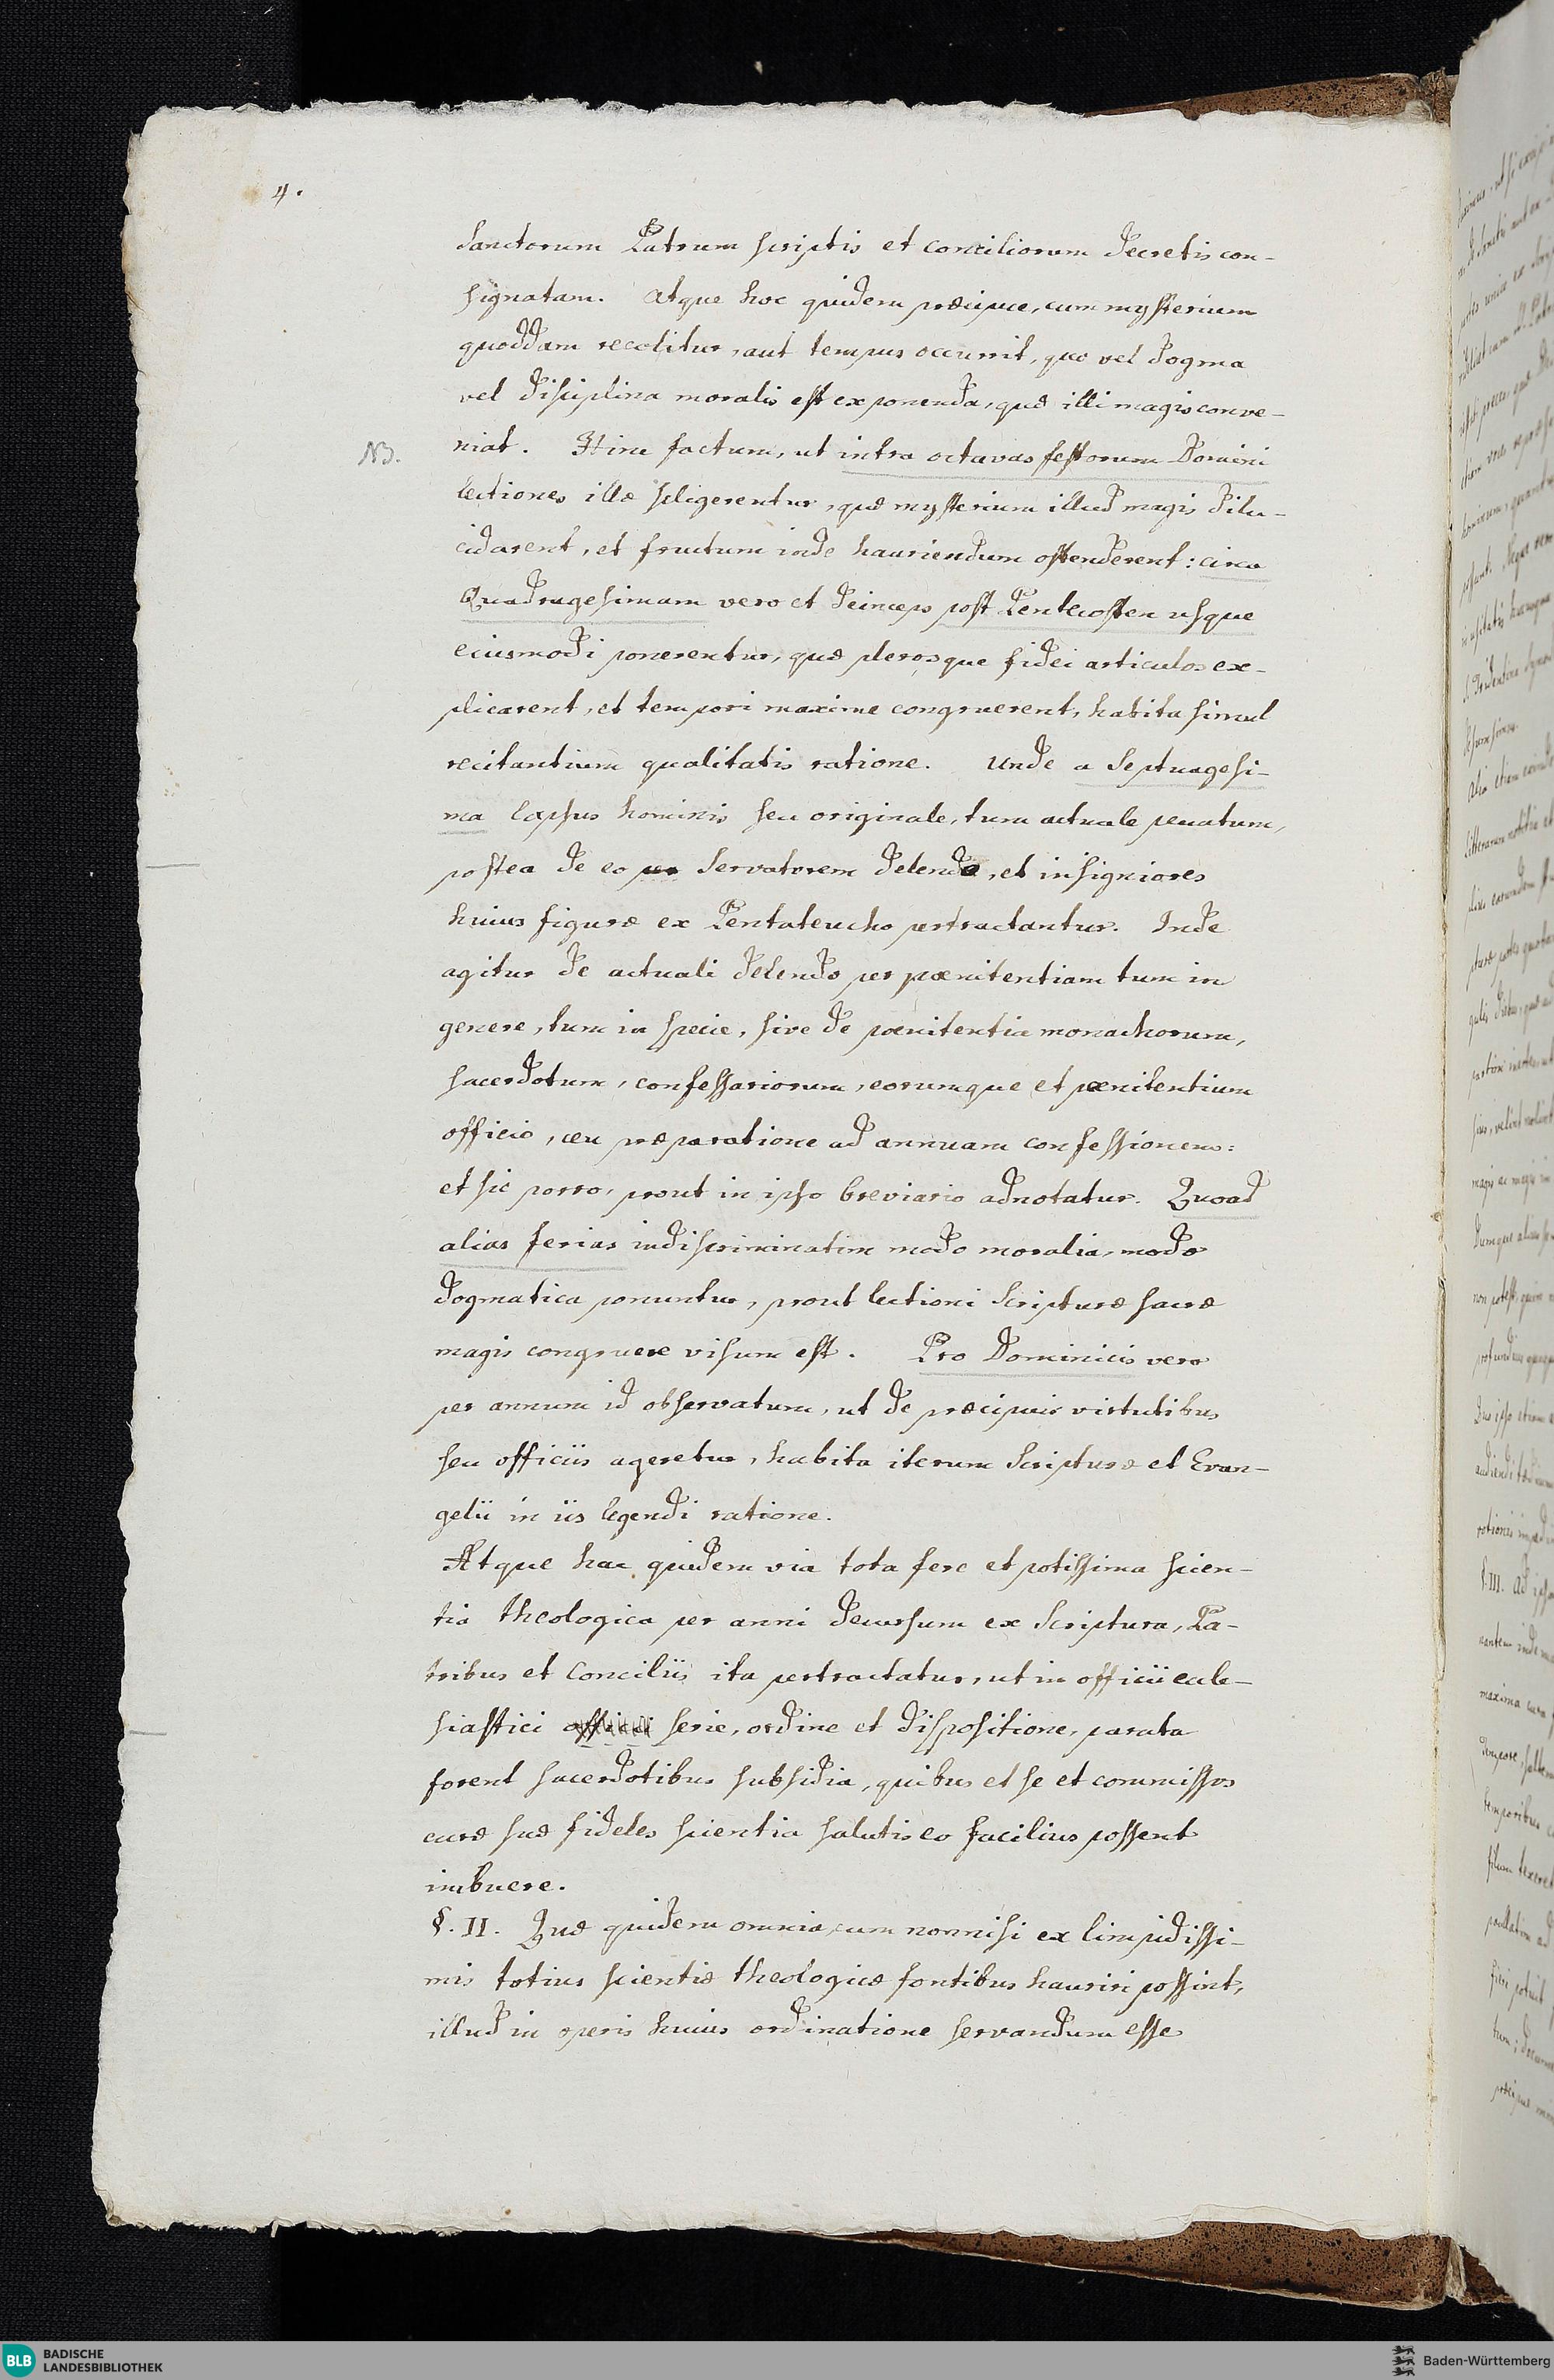 4.
Sanctorum Patrum scriptis et conciliorum decretis con-
signatam. Atque hoc quidem præcipue, cum mysterium
quoddam recolitur, aut tempus occurrit, quo vel dogma
vel disciplina moralis est exponenda, quæ illi magis conve-
NB. niat. Hinc factum, ut intra octavas festorum Domini
lectiones illæ seligerentur, quæ mysterium illud magis dilu-
cidarent, et fructum inde hauriendum ostenderent: circa
Quadragesimam vero et deinceps post Pentecosten usque
eiusmodi ponerentur, quæ plerosque fidei articulos ex-
plicarent, et tempori maxime congruerent, habita simul
recitantium qualitatis ratione. Unde a Septuagesi-
ma lapsus hominis seu originale, tum actuale peccatum,
postea de eo per Servatorem delendo, et insigniores
huius figuræ ex Pentateucho pertractantur. Inde
agitur de actuali delendo per pœnitentiam tum in
genere, tum in specie, sive de pœnitentia monachorum,
sacerdotum, confessariorum, eorumque et pœnitentium
officio, ceu præparatione ad annuam confessionem:
et sic porro, prout in ipso breviario adnotatur. Quoad
alias ferias indiscriminatim modo moralia, modo
dogmatica ponuntur, prout lectioni Scripturæ sacræ
magis congruere visum est. Pro Dominicis vero
per annum id observatum, ut de præcipuis virtutibus
seu officiis ageretur, habita iterum Scripturæ et Evan-
gelii in iis legendi ratione.
Atque hac quidem via tota fere et potissima scien-
tia theologica per anni decursum ex Scriptura, Pa-
tribus et Conciliis ita pertractatur, ut in officii eccle-
siastici serie, ordine et dispositione, parata
forent sacerdotibus subsidia, quibus et se et commissos
curæ suæ fideles scientia salutis eo facilius possent
imbuere.
§. II. Quæ quidem omnia cum nonnisi ex limpidissi-
mis totius scientiæ theologicæ fontibus hauriri possint,
illud in operis huius ordinatione servandum esse
BLB BADISCHE
LANDESBIBLIOTHEK
Baden-Württemberg